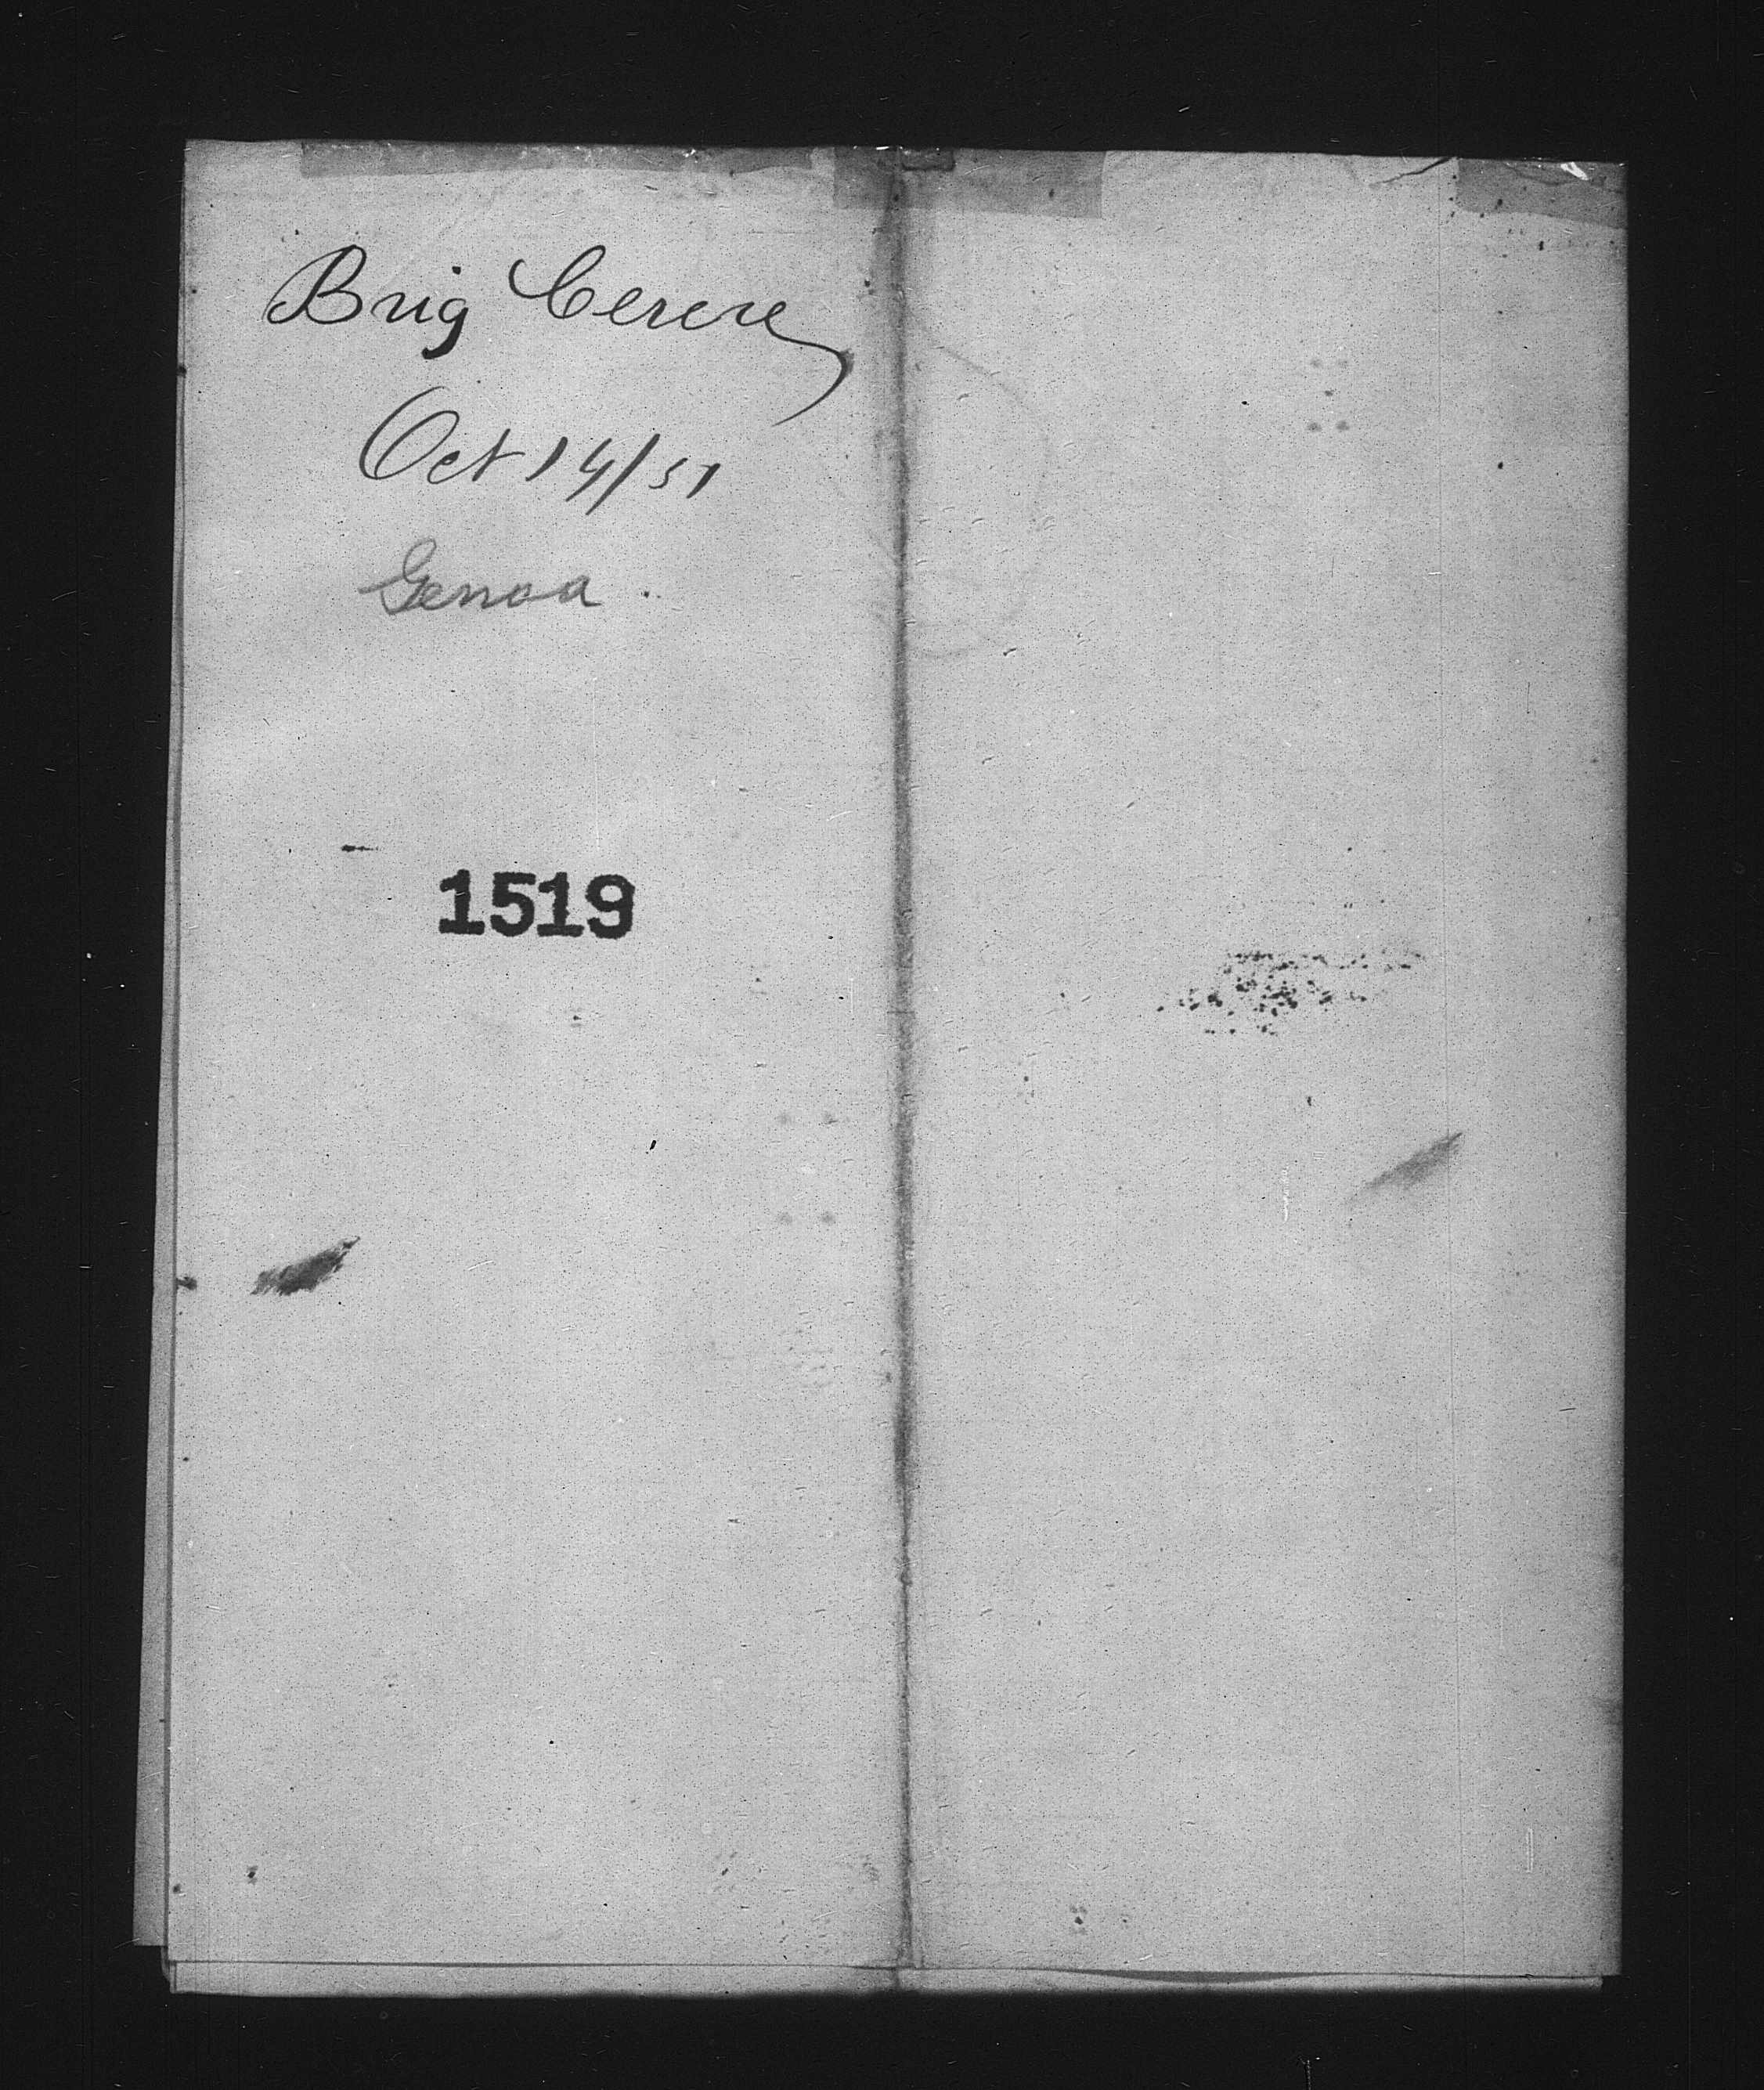 Brig Cerere
Oct 14/51
Genoa.
1519